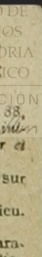 O DE
NOS
ORIA
RICO
CIÓN
33,
er el
sur
icu.
ara-